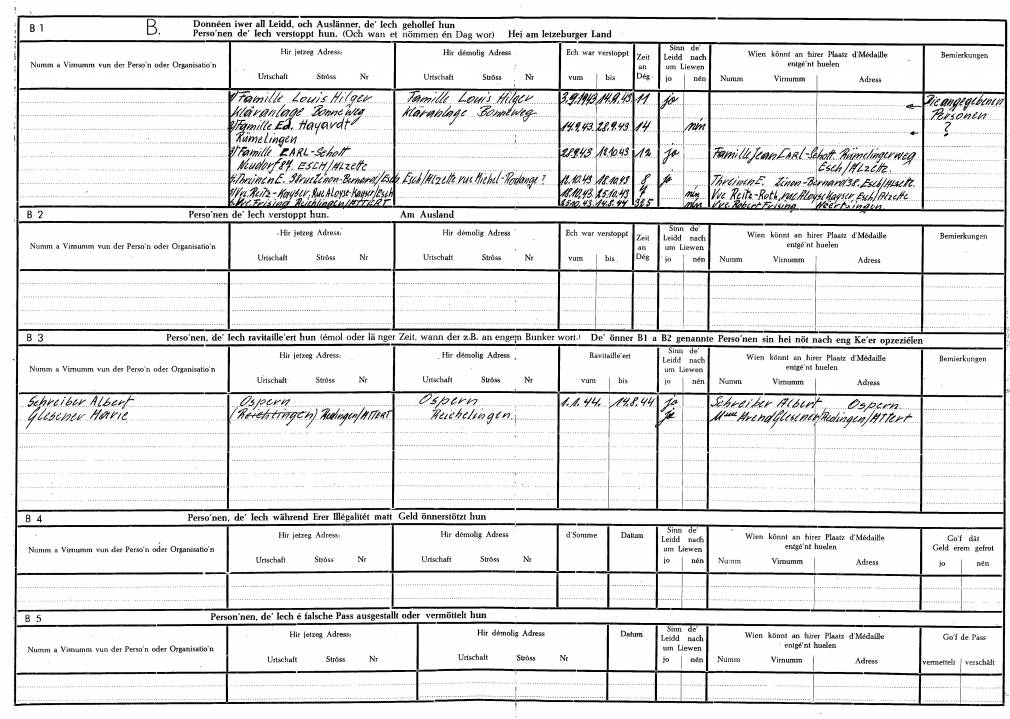 B 1 B. Donnéen iwer all Leidd, och Auslänner, de' Iech gehollef hun
Perso'nen de' Iech verstoppt hun. (Och wan et nömmen én Dag wor) Hei am letzeburger Land
Numm a Virnumm vun der Perso'n oder Organisatio'n
Hir jetzeg Adress:
Urtschaft Ströss Nr
Hir démolig Adress
Urtschaft Ströss Nr
Ech war verstoppt
vum bis
Zeit an Dég
Sinn de' Leidd nach um Liewen
jo nén
Wien könnt an hirer Plaatz d'Médaille entgé'nt huelen
Numm Virnumm Adress
Bemierkungen
1) Famille Louis Hilger Famille Louis Hilger 3.9.1943 14.9.43 11 jo Die angegebenen
Kläranlage Bonneweg Kläranlage Bonneweg Personen
2) Famille Ed. Hayardt 14.9.43 28.9.43 14 nén ?
Rümelingen
3) Famille EARL-Schott 28.9.43 12.10.43 12 jo Famille Jean EARL-Schott Rümelingerweg
Neudorf 87 ESCH/ALZETTE Esch/Alzette
Threinen E. Strue Linon-Bernard/Esch Esch/Alzette rue Michel-Rodange? 12.10.43 18.10.43 8 jo Threinen E. Linon-Bernard 38. Esch/Alzette.
Vve. Reitz-Kayser, rue Aloyse Kayser/Esch 18.10.43 25.10.43 7 nén Vve Reitz-Roth, rue Aloys Kayser, Esch/Alzette
Vve. Frising Reichlingen/ATTERT 25.10.43 14.8.44 325 nén Vve Robert Frising
B 2 Perso'nen de' Iech verstoppt hun. Am Ausland
Numm a Virnumm vun der Perso'n oder Organisatio'n
Hir jetzeg Adress:
Urtschaft Ströss Nr
Hir démolig Adress
Urtschaft Ströss Nr
Ech war verstoppt
vum bis
Zeit an Dég
Sinn de' Leidd nach um Liewen
jo nén
Wien könnt an hirer Plaatz d'Médaille entgé'nt huelen
Numm Virnumm Adress
Bemierkungen
B 3 Perso'nen, de' Iech ravitaille'ert hun (émol oder länger Zeit, wann der z.B. an engem Bunker wort.) De' önner B1 a B2 genannte Perso'nen sin hei nöt nach eng Ke'er opzeziélen
Numm a Virnumm vun der Perso'n oder Organisatio'n
Hir jetzeg Adress:
Urtschaft Ströss Nr
Hir démolig Adress
Urtschaft Ströss Nr
Ravitaille'ert
vum bis
Sinn de' Leidd nach um Liewen
jo nén
Wien könnt an hirer Plaatz d'Médaille entgé'nt huelen
Numm Virnumm Adress
Bemierkungen
Schreiber Albert Ospern Ospern 1.1.44. 14.8.44 jo Schreiber Albert Ospern
Glesener Marie Redingen/ATTERT Reichelingen jo Mme Arend Glesener/Redingen/Attert
B 4 Perso'nen, de' Iech während Erer Illégalitét matt Geld önnerstötzt hun
Numm a Virnumm vun der Perso'n oder Organisatio'n
Hir jetzeg Adress:
Urtschaft Ströss Nr
Hir démolig Adress
Urtschaft Ströss Nr
d'Somme Datum
Sinn de' Leidd nach um Liewen
jo nén
Wien könnt an hirer Plaatz d'Médaille entgé'nt huelen
Numm Virnumm Adress
Go'f dät Geld erem gefrot
jo nén
B 5 Person'nen, de' Iech é falsche Pass ausgestallt oder vermöttelt hun
Numm a Virnumm vun der Perso'n oder Organisatio'n
Hir jetzeg Adress:
Urtschaft Ströss Nr
Hir démolig Adress
Urtschaft Ströss Nr
Datum
Sinn de' Leidd nach um Liewen
jo nén
Wien könnt an hirer Plaatz d'Médaille entgé'nt huelen
Numm Virnumm Adress
Go'f de Pass
vermettelt verschäft